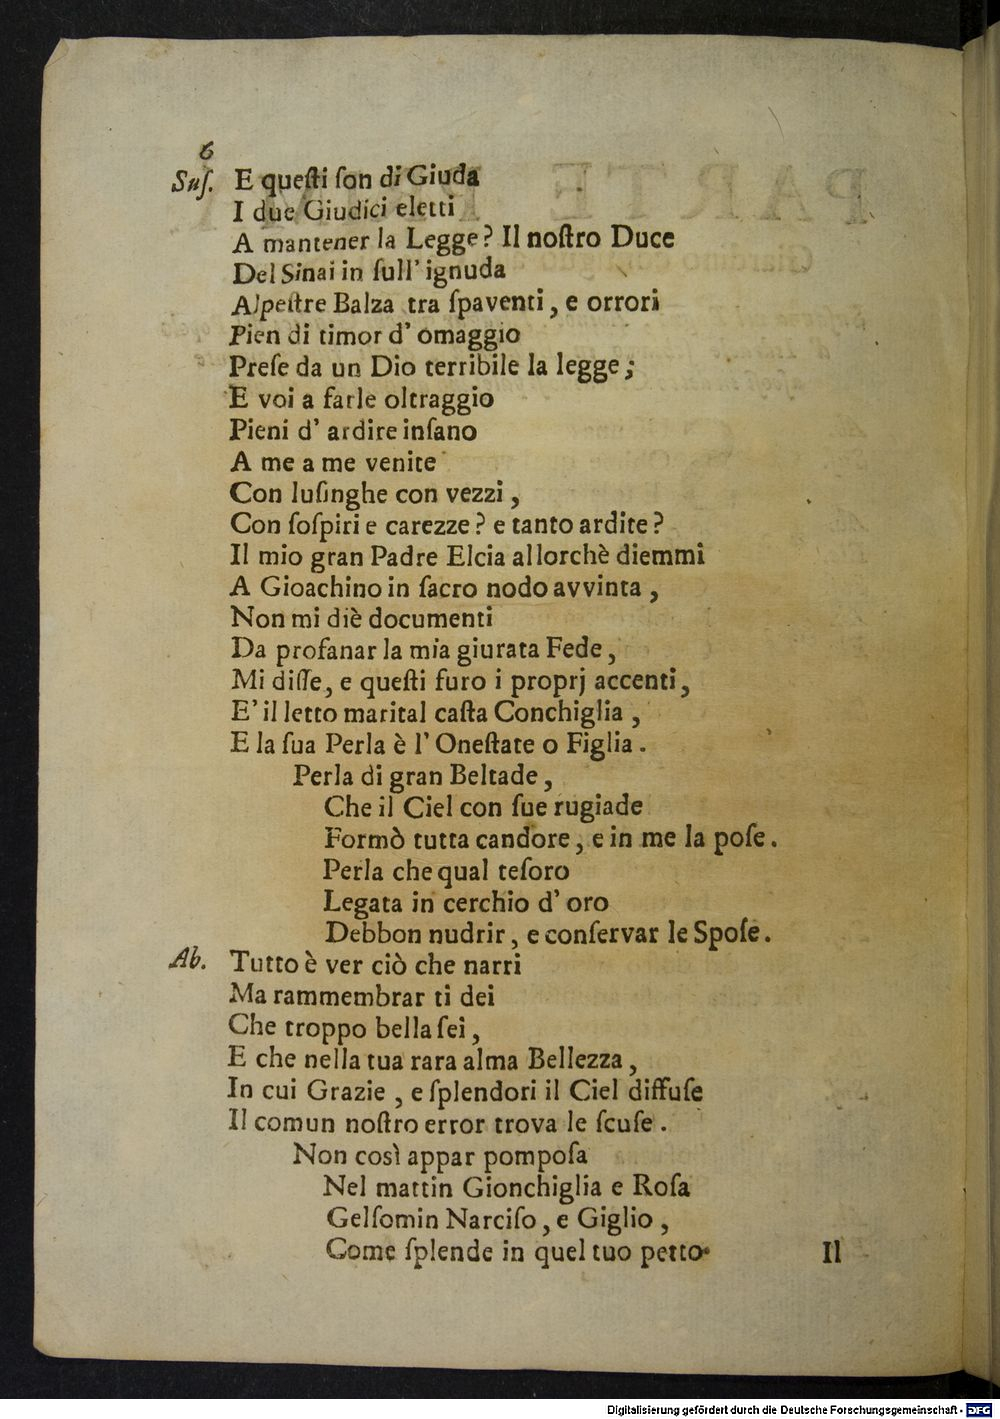 6
Suſ. E queſti ſon di Giuda
I due Giudici eletti
A mantener la Legge? Il noſtro Duce
Del Sinai in ſull' ignuda
Alpeſtre Balza tra ſpaventi, e orrori
Pien di timor d' omaggio
Preſe da un Dio terribile la legge;
E voi a farle oltraggio
Pieni d' ardire inſano
A me a me venite
Con luſinghe con vezzi,
Con ſoſpiri e carezze? e tanto ardite?
Il mio gran Padre Elcia allorchè diemmi
A Gioachino in ſacro nodo avvinta,
Non mi diè documenti
Da profanar la mia giurata Fede,
Mi diſſe, e queſti furo i proprj accenti,
E' il letto marital caſta Conchiglia,
E la ſua Perla è l' Oneſtate o Figlia.
Perla di gran Beltade,
Che il Ciel con ſue rugiade
Formò tutta candore, e in me la poſe.
Perla che qual teſoro
Legata in cerchio d' oro
Debbon nudrir, e conſervar le Spoſe.
Ab. Tutto è ver ciò che narri
Ma rammembrar ti dei
Che troppo bella ſei,
E che nella tua rara alma Bellezza,
In cui Grazie, e ſplendori il Ciel diffuſe
Il comun noſtro error trova le ſcuſe.
Non così appar pompoſa
Nel mattin Gionchiglia e Roſa
Gelſomin Narciſo, e Giglio,
Come ſplende in quel tuo petto
Il
Digitalisierung gefördert durch die Deutsche Forschungsgemeinschaft - DFG